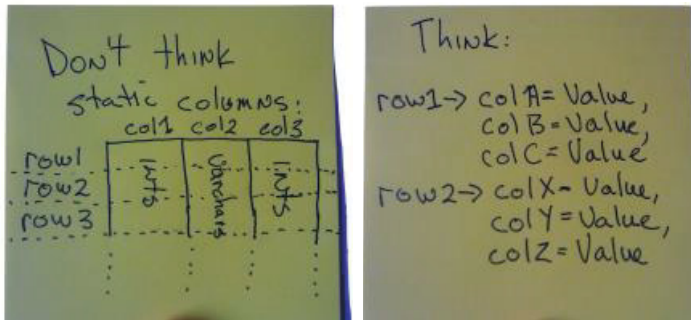 Don't think
static columns:
col1 col2 col3
row1
row2
row3
Ints
Varchars
Ints
Think:
row1-> colA= Value,
colB= Value,
colC= Value
row2-> colX= Value,
colY= Value,
colZ= Value